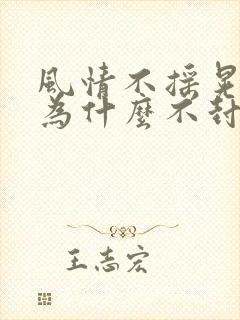 風情不搖晃
為什麼不封
王志宏